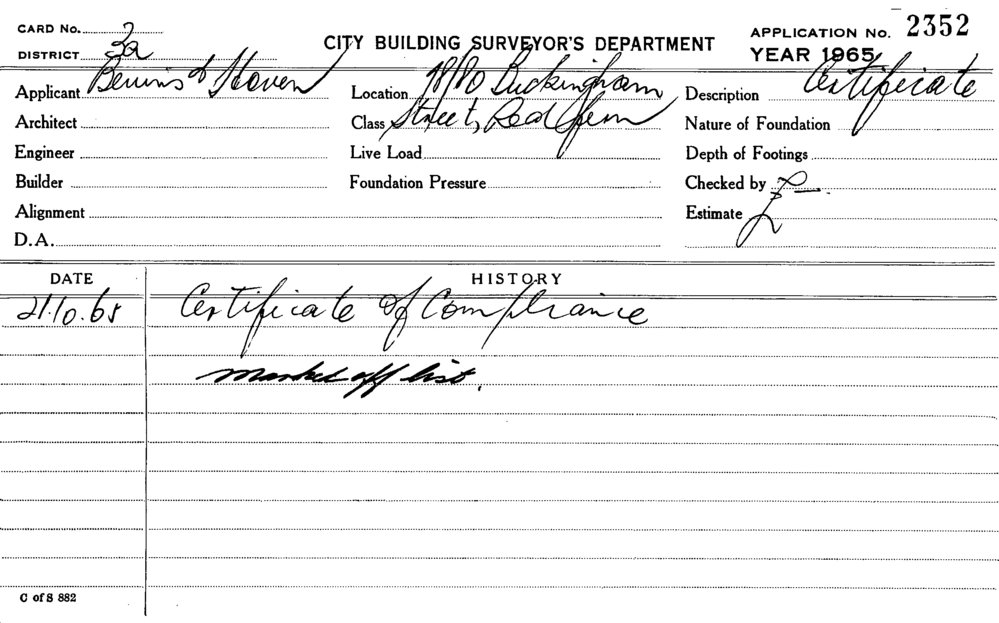 CARD No. 3a
DISTRICT
CITY BUILDING SURVEYOR'S DEPARTMENT
APPLICATION No. 2352
YEAR 1965
Applicant &
Location Buckingham
Description Certificate
Architect
Class Street, Redfern
Nature of Foundation
Engineer
Live Load
Depth of Footings
Builder
Foundation Pressure
Checked by
Alignment
Estimate £
D.A.
DATE HISTORY
21.10.65 Certificate of Compliance
marked off list.
C of S 882